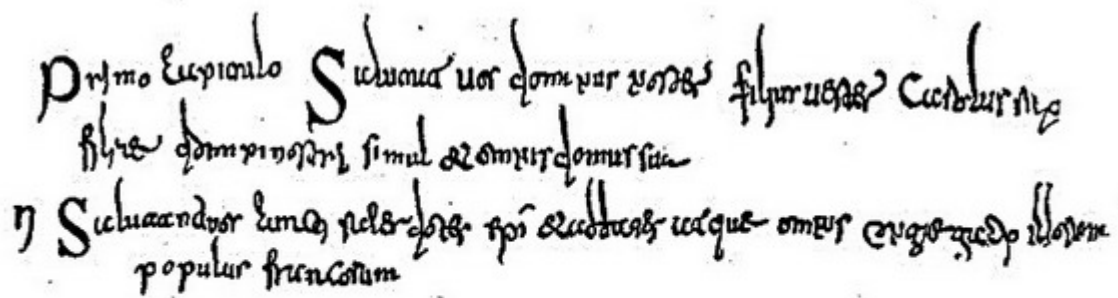 Primo Capitulo Salutat uos dominus noster filius uester Carolus
filiae domini nostri simul et omnis domus sua
η Salutant uos cuncti sacerdotes epi et abbates atque omnis congregatio illorum
populus francorum